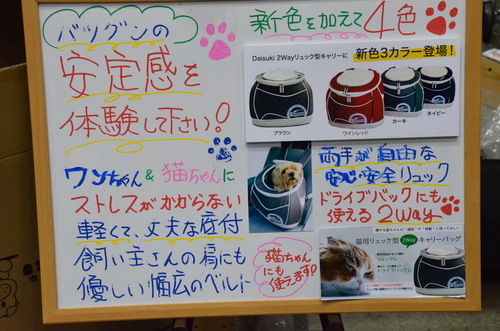 バツグンの
安定感を
体験して下さい!
ワンちゃん & 猫ちゃんに
ストレスがかからない
軽くて、丈夫な底付
飼い主さんの肩にも
優しい幅広のベルト
新色を加えて4色
Daisuki 2Wayリュック型キャリーに
新色3カラー登場!
ブラウン
ワインレッド
カーキ
ネイビー
両手が自由な
安心安全リュック
ドライブバックにも
使える2way
猫ちゃん
にも
使えます!
猫用リュック型 2Way キャリーバッグ